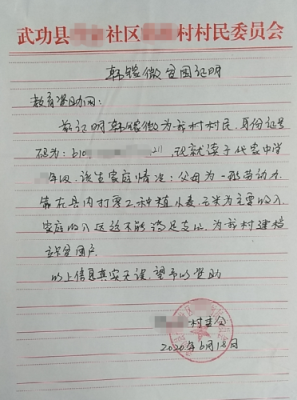 武功县 社区 村村民委员会
贫困证明
教育资助网:
兹证明韩 为我村村民,身份证号
码为:610 211,现就读于 中学
年级,该生家庭情况:父母为一般劳动力
靠在县内打零工种植小麦,玉米为主要收入,
家庭收入 不能满足支出,为我村建档
贫困户
以上信息真实无误,望予以资助
村委会
2020年6月18日